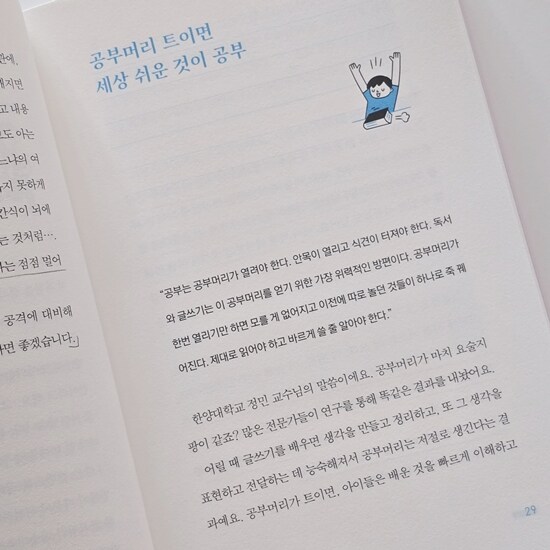 만에,
해지면
고 내용
모도 아는
느냐의 여
하지 못하게
간식이 뇌에
는 것처럼….
나는 점점 멀어
공격에 대비해
하면 좋겠습니다.」
공부머리 트이면
세상 쉬운 것이 공부
“공부는 공부머리가 열려야 한다. 안목이 열리고 식견이 터져야 한다. 독서
와 글쓰기는 이 공부머리를 얻기 위한 가장 위력적인 방편이다. 공부머리가
한번 열리기만 하면 모를 게 없어지고 이전에 따로 놀던 것들이 하나로 죽 꿰
어진다. 제대로 읽어야 하고 바르게 쓸 줄 알아야 한다.”
한양대학교 정민 교수님의 말씀이에요. 공부머리가 마치 요술지
팡이 같죠? 많은 전문가들이 연구를 통해 똑같은 결과를 내놨어요.
어릴 때 글쓰기를 배우면 생각을 만들고 정리하고, 또 그 생각을
표현하고 전달하는 데 능숙해져서 공부머리는 저절로 생긴다는 결
과예요. 공부머리가 트이면, 아이들은 배운 것을 빠르게 이해하고
29